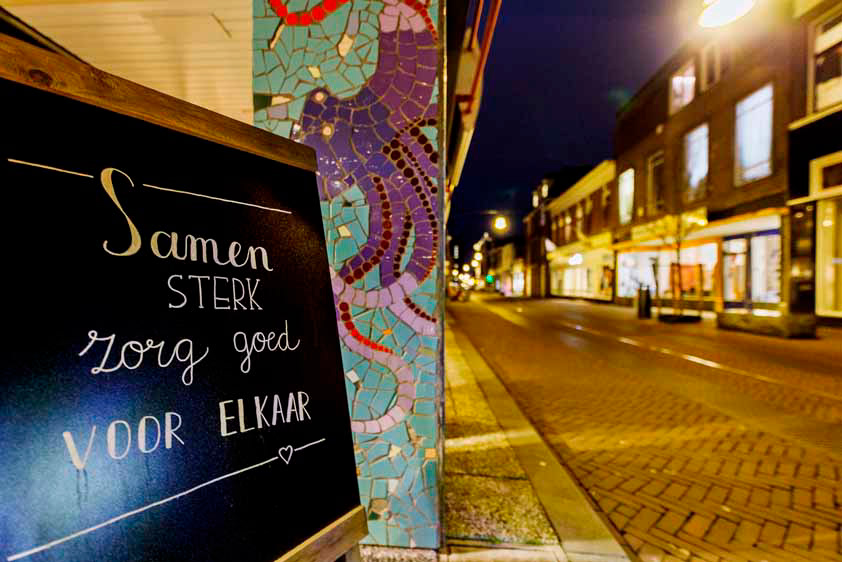 Samen
STERK
zorg goed
VOOR ELKAAR